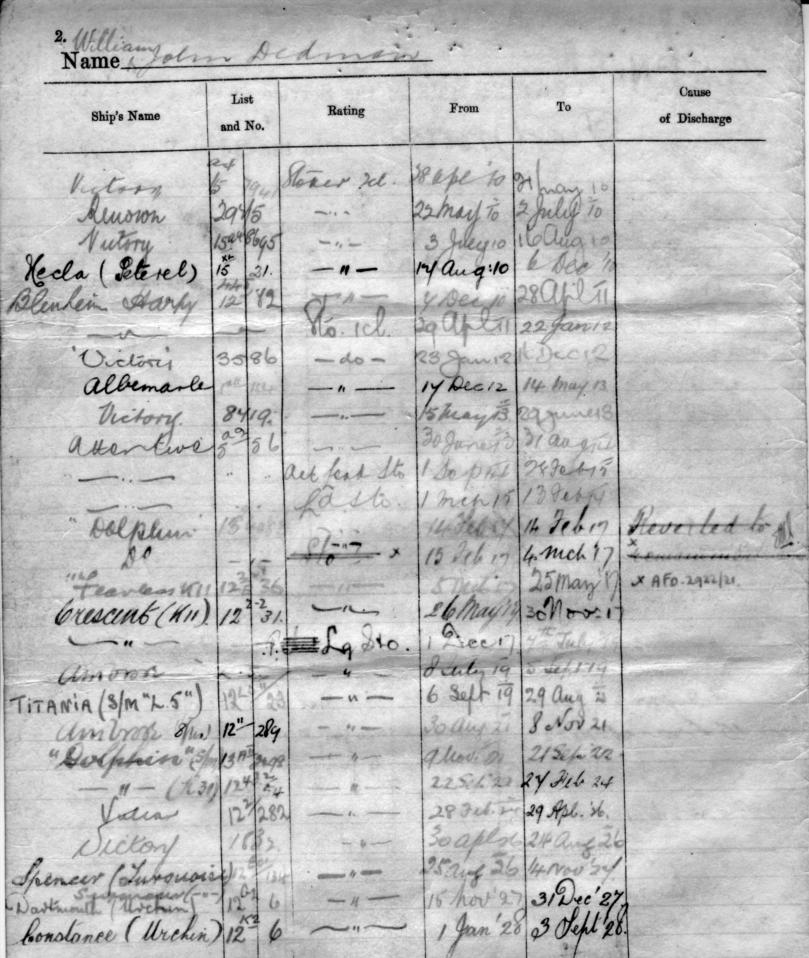 2.
Name William John Dedman
Ship's Name List and No. Rating From To Cause of Discharge
Victory 15 Stoker 2cl. 28 Apl '10 21 May 10
Renown 29 15 —"— 22 May 10 2 July 10
Victory 15 8695 —"— 3 July 10 16 Aug 10
Hecla (Peterel) 15 31. —"— 17 Aug: 10 6 Dec '10
Blenheim Harpy 12 82 —"— 7 Dec 10 28 Apl 11
—"— Sto. 1cl. 29 Apl 11 22 Jan 12
Victory 35 86 —do— 23 Jan 12 16 Dec 12
Albemarle —"— 17 Dec 12 14 May 13
Victory. 84 19. —"— 15 May 13 29 June 13
Attentive 5 56 —"— 30 June 13 31 Aug
—"— Act Lead Sto 1 Sept 28 Feb 15
—"— Ld Sto. 1 Mch 15 13 Feb
"Dolphin" 13 —"— 14 Feb 14 Feb 17 Reverted to
Do —"— Sto x 15 Feb 17 4 Mch '17 x
Fearless K11 12 36 —"— 5 Mch 17 25 May '17 x AFO. 2922/21.
Crescent (K11). 12 31. —"— 26 May 17 30 Nov. 17
—"— Lg Sto. 1 Dec 17 July
Ambrose —"— 8 July 19 5 Sept 19
TITANIA (S/M "L.5") 12 23 —"— 6 Sept 19 29 Aug 21
Ambrose 12 289 —"— 30 Aug 21 8 Nov 21
"Dolphin" 13 —"— 9 Nov. 21 21 Sep 22
—"— 12 54 —"— 22 Sep 22 27 Feb 24
12 282 —"— 28 Feb 24 29 Apl. 26.
Victory —"— 30 Apl 26 24 Aug 26
Spencer (Turquoise) 12 —"— 25 Aug 26 14 Nov '27
Dartmouth (Urchin) 12 6 —"— 15 Nov '27 31 Dec '27
Constance (Urchin) 12 6 —"— 1 Jan '28 3 Sept '28